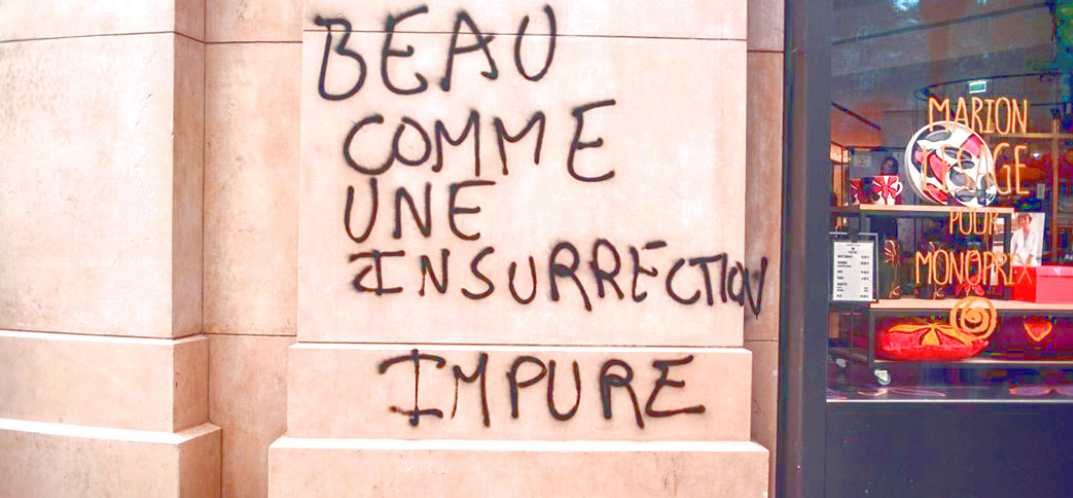 BEAU
COMME
UNE
INSURRECTION
IMPURE
MARION
LESAGE
POUR
MONOPRIX